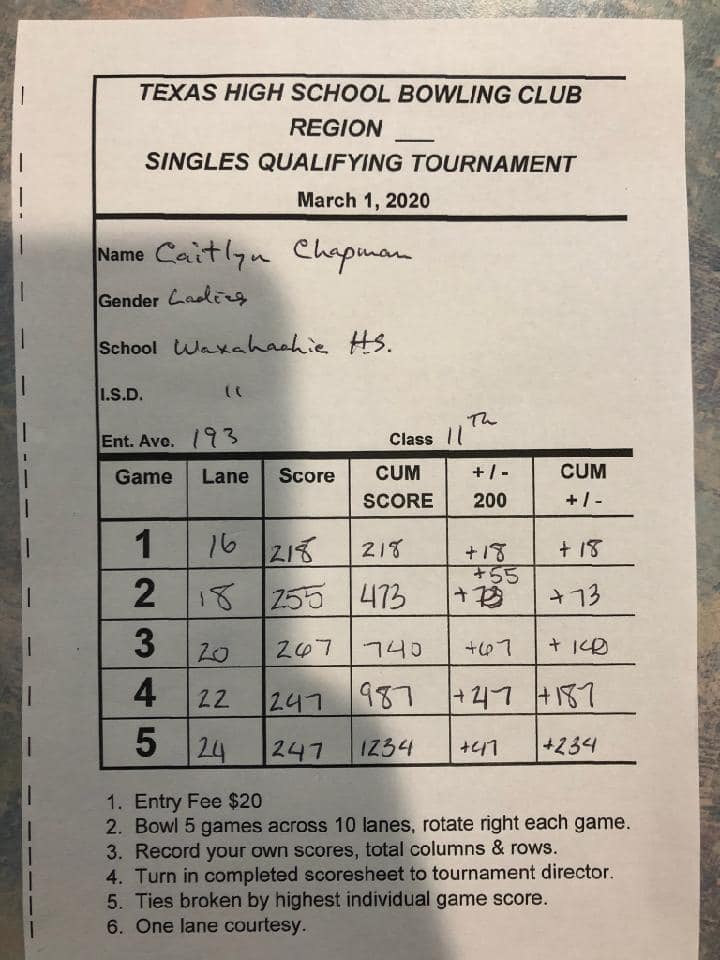 TEXAS HIGH SCHOOL BOWLING CLUB
REGION ___
SINGLES QUALIFYING TOURNAMENT
March 1, 2020
Name Caitlyn Chapman
Gender Ladies
School Waxahachie HS.
I.S.D. "
Ent. Ave. 193 Class 11Th
Game Lane Score CUM SCORE +/- 200 CUM +/-
1 16 218 218 +18 +18
+55
2 18 255 473 +73 +73
3 20 267 740 +67 +140
4 22 247 987 +47 +187
5 24 247 1234 +47 +234
1. Entry Fee $20
2. Bowl 5 games across 10 lanes, rotate right each game.
3. Record your own scores, total columns & rows.
4. Turn in completed scoresheet to tournament director.
5. Ties broken by highest individual game score.
6. One lane courtesy.